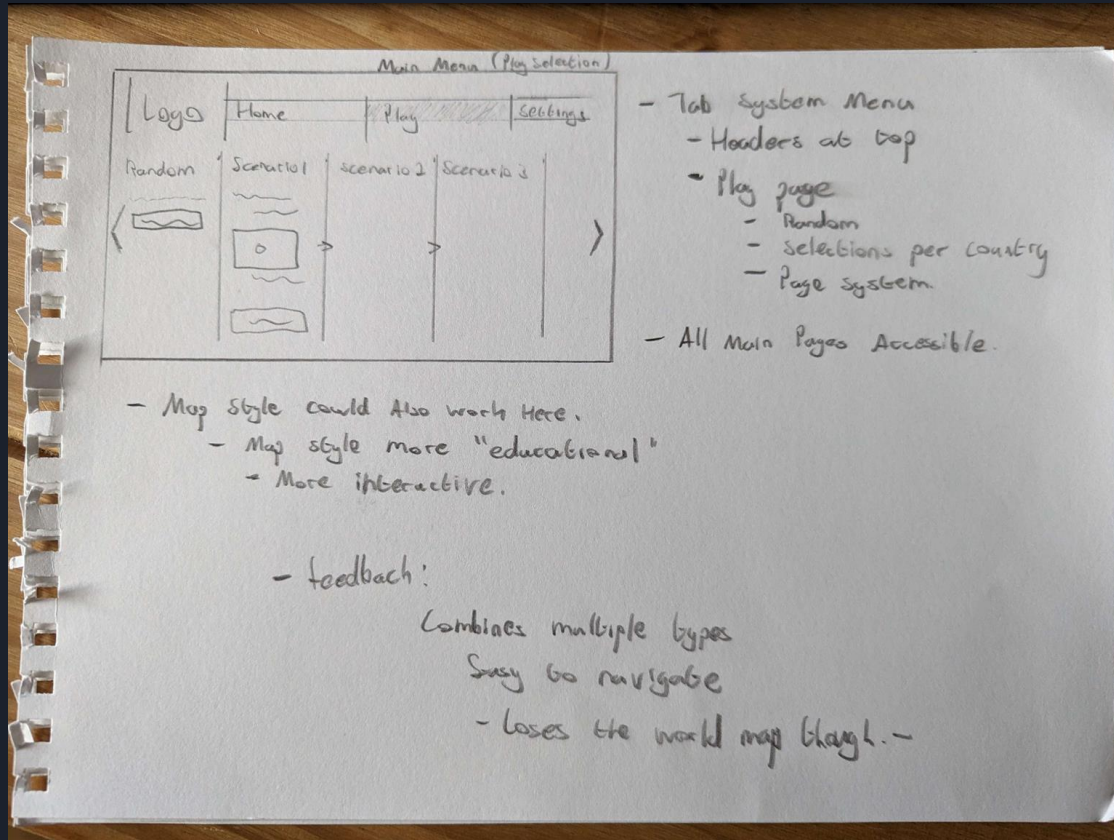 Main Menu (Play Selection)
Logo
Home
Play
Settings
Random
Scenario 1
Scenario 2
Scenario 3
- Tab System Menu
- Headers at top
- Play page
- Random
- Selections per country
- Page system.
- All Main Pages Accessible.
- Map Style could Also work Here.
- Map style more "educational"
- More interactive.
- feedback:
Combines multiple types
Easy to navigate
- Loses the world map though. -